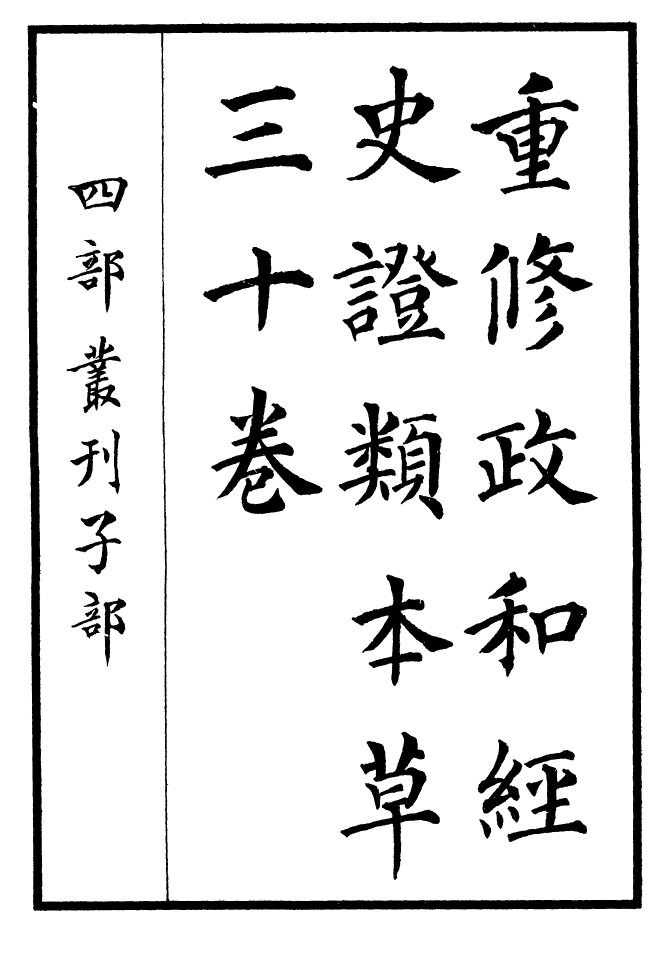 重修政和經
史證類本草
三十卷
四部叢刊子部